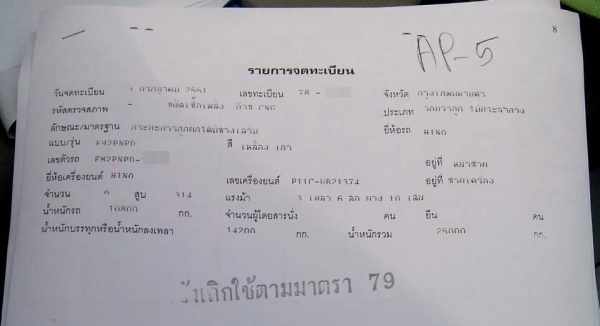 8
AP-5
รายการจดทะเบียน
วันจดทะเบียน กรกฎาคม 2551 เลขทะเบียน 78 - จังหวัด กรุงเทพมหานคร
รหัสตรวจสภาพ - ชนิดเชื้อเพลิง ก๊าซ CNG ประเภท รถบรรทุก ไม่ประจำทาง
ลักษณะ/มาตรฐาน กระบะบรรทุก ยี่ห้อรถ HINO
แบบ/รุ่น FM2PNPD สี เหลือง เทา
เลขตัวรถ FM2PNPD- อยู่ที่
ยี่ห้อเครื่องยนต์ HINO เลขเครื่องยนต์ P11C-UR21374 อยู่ที่
จำนวน 6 สูบ 314 แรงม้า 3 เพลา 6 ล้อ ยาง 10 เส้น
น้ำหนักรถ 10800 กก. จำนวนผู้โดยสารนั่ง คน ยืน คน
น้ำหนักบรรทุกหรือน้ำหนักลงเพลา 14200 กก. น้ำหนักรวม 25000 กก.
ใช้ตามมาตรา 79